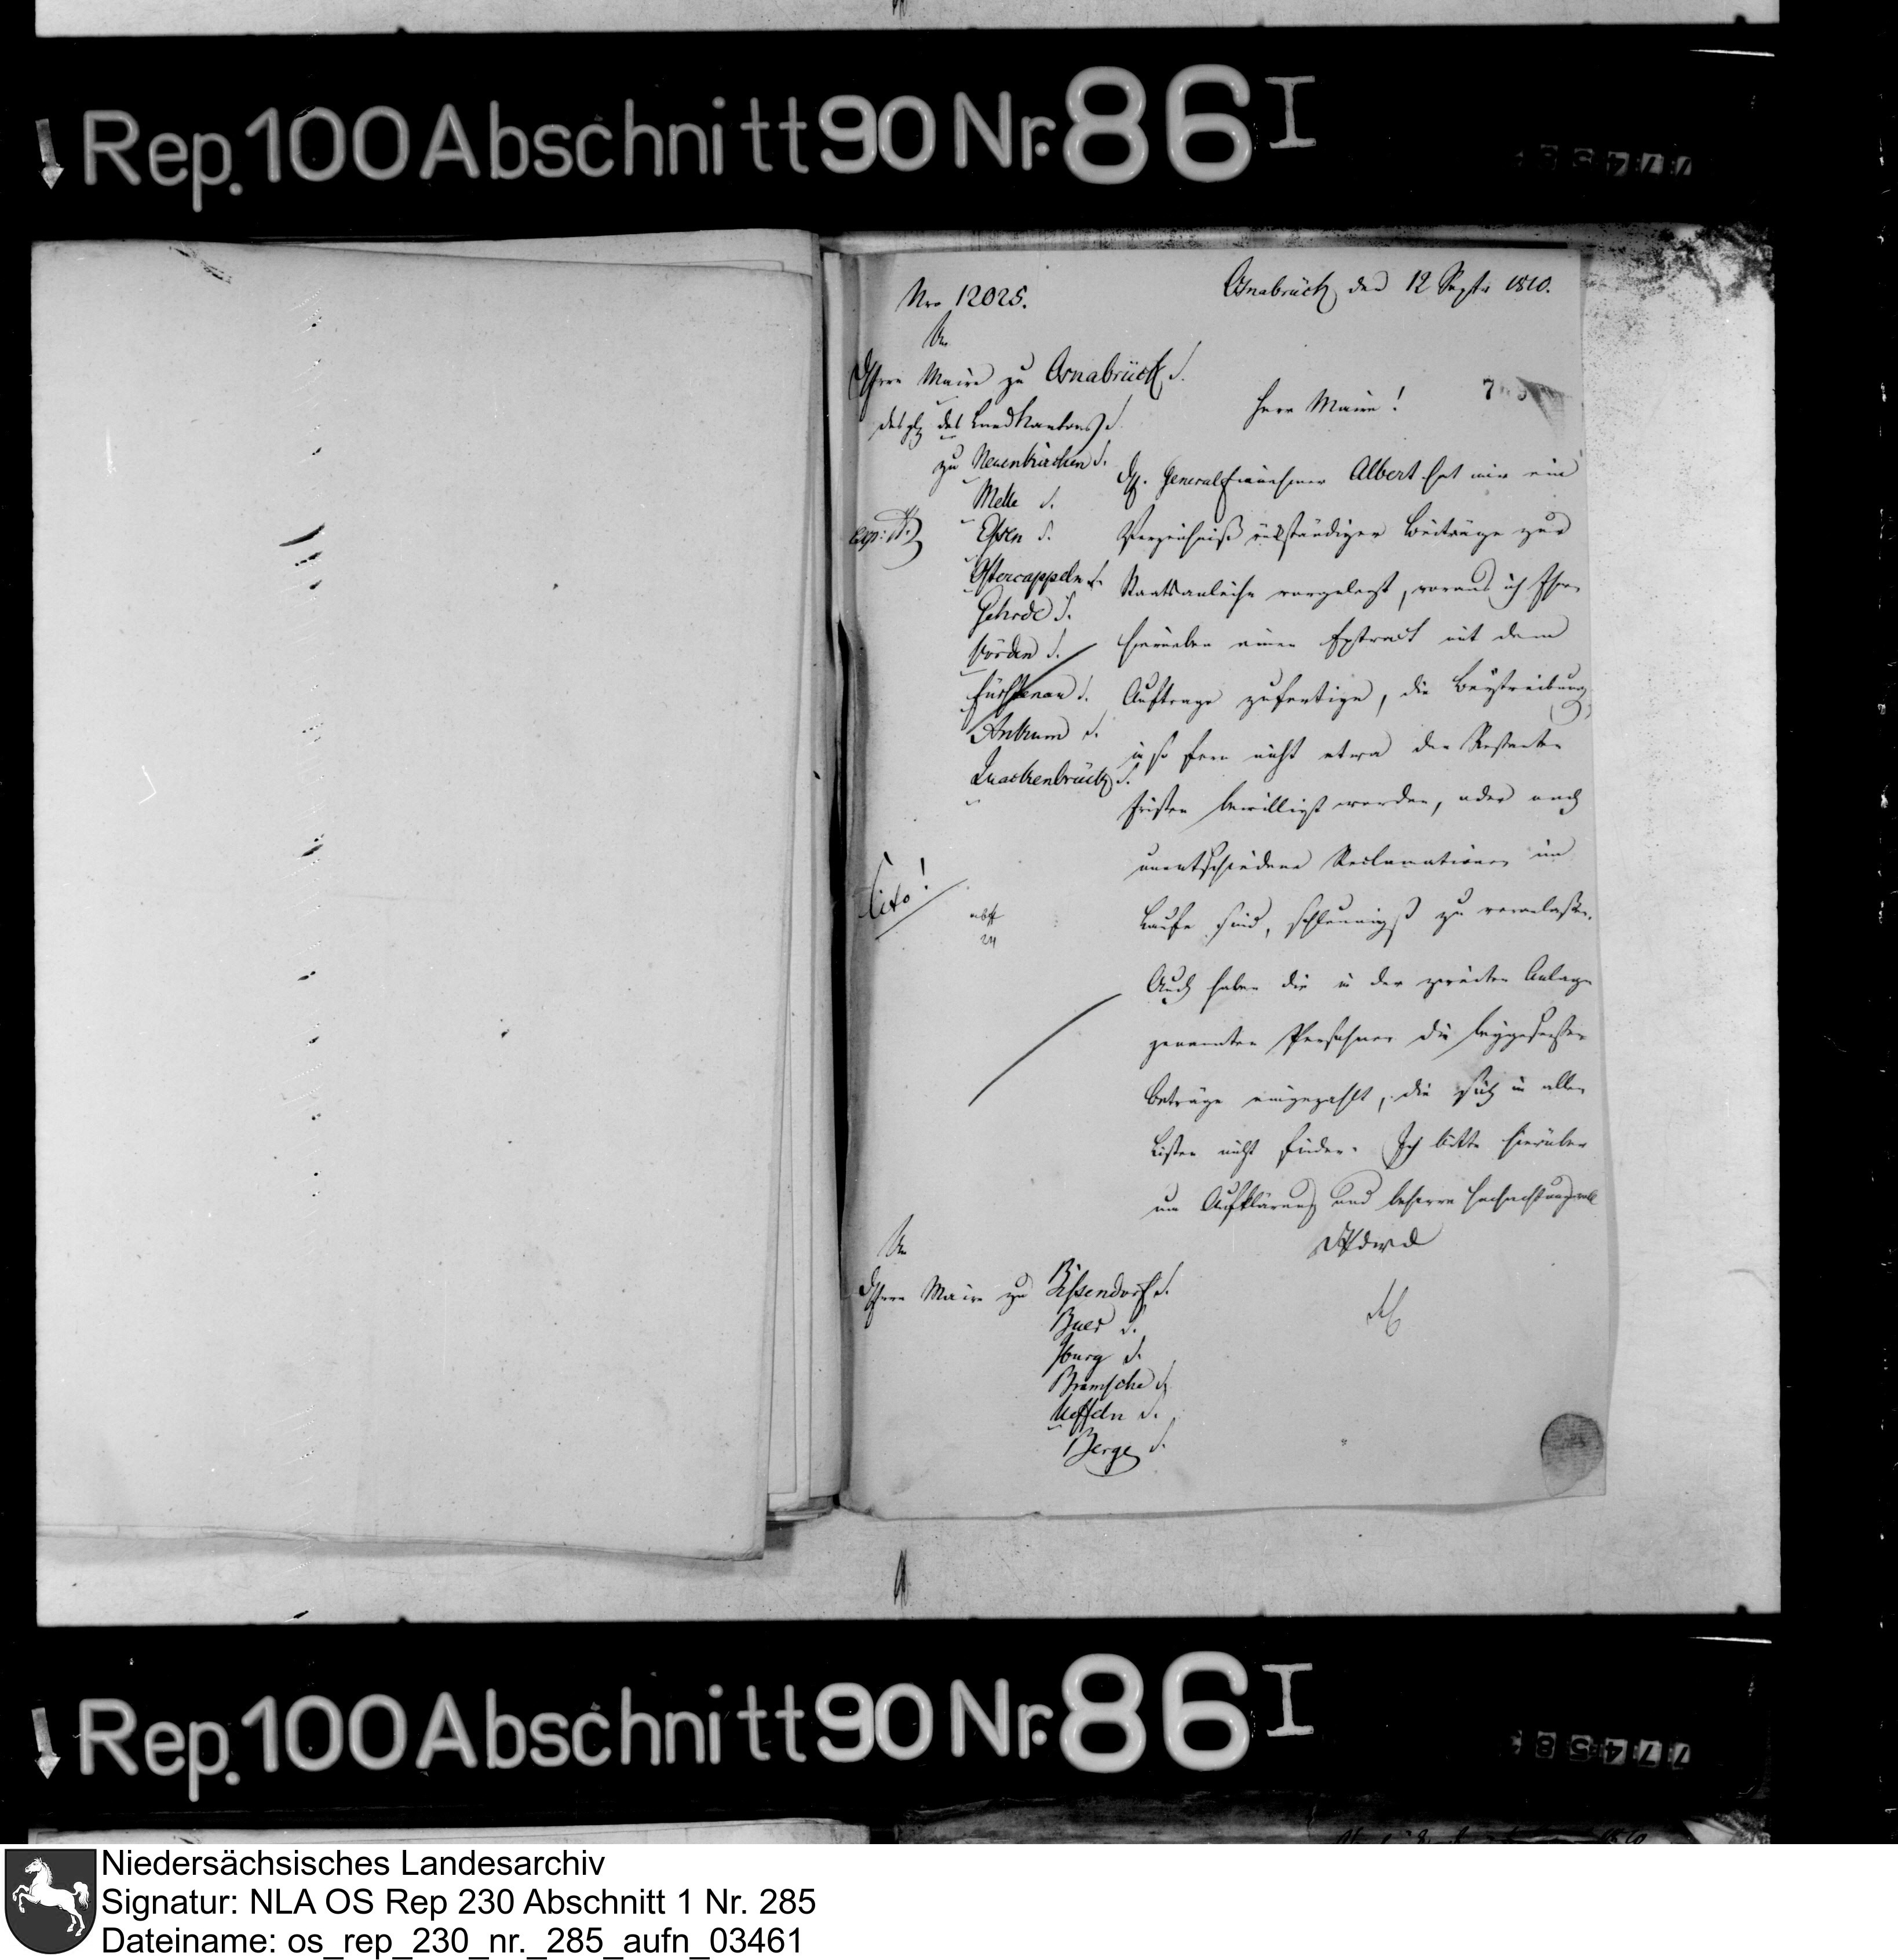 Rep. 100 Abschnitt 90 Nr. 86 I
Nro 12025.
Osnabrück den 12 Septr 1810.
An
Herrn Maire zu Osnabrück
desgl. des Landkantons
zu Neuenkirchen
Melle
Essen
Ostercappeln
Gehrde
Vörden
Fürstenau
Ankum
Quackenbrück
exp:
Cito!
7
Herr Maire!
Generaleinnehmer Albert hat mir ein
Verzeichniß rückständiger Beiträge zur
Staatsanleihe vorgelegt, woraus ich Ihnen
hierneben einen Extract mit dem
Auftrage zufertige, die Beytreibung,
in so fern nicht etwa den Restanten
Fristen bewilligt worden, oder noch
unentschiedene Reclamationen im
Laufe sind, schleunigst zu veranlassen.
Auch haben die in der zweiten Anlage
genannten Persohnen die beygesetzten
Beträge eingezahlt, die sich in allen
Listen nicht finden. Ich bitte hierüber
um Aufklärung und beharre hochachtungsvoll
An
Herrn Maire zu Bissendorf
Buer
Iburg
Bramsche
Ueffeln
Berge
Rep. 100 Abschnitt 90 Nr. 86 I
Niedersächsisches Landesarchiv
Signatur: NLA OS Rep 230 Abschnitt 1 Nr. 285
Dateiname: os_rep_230_nr._285_aufn_03461